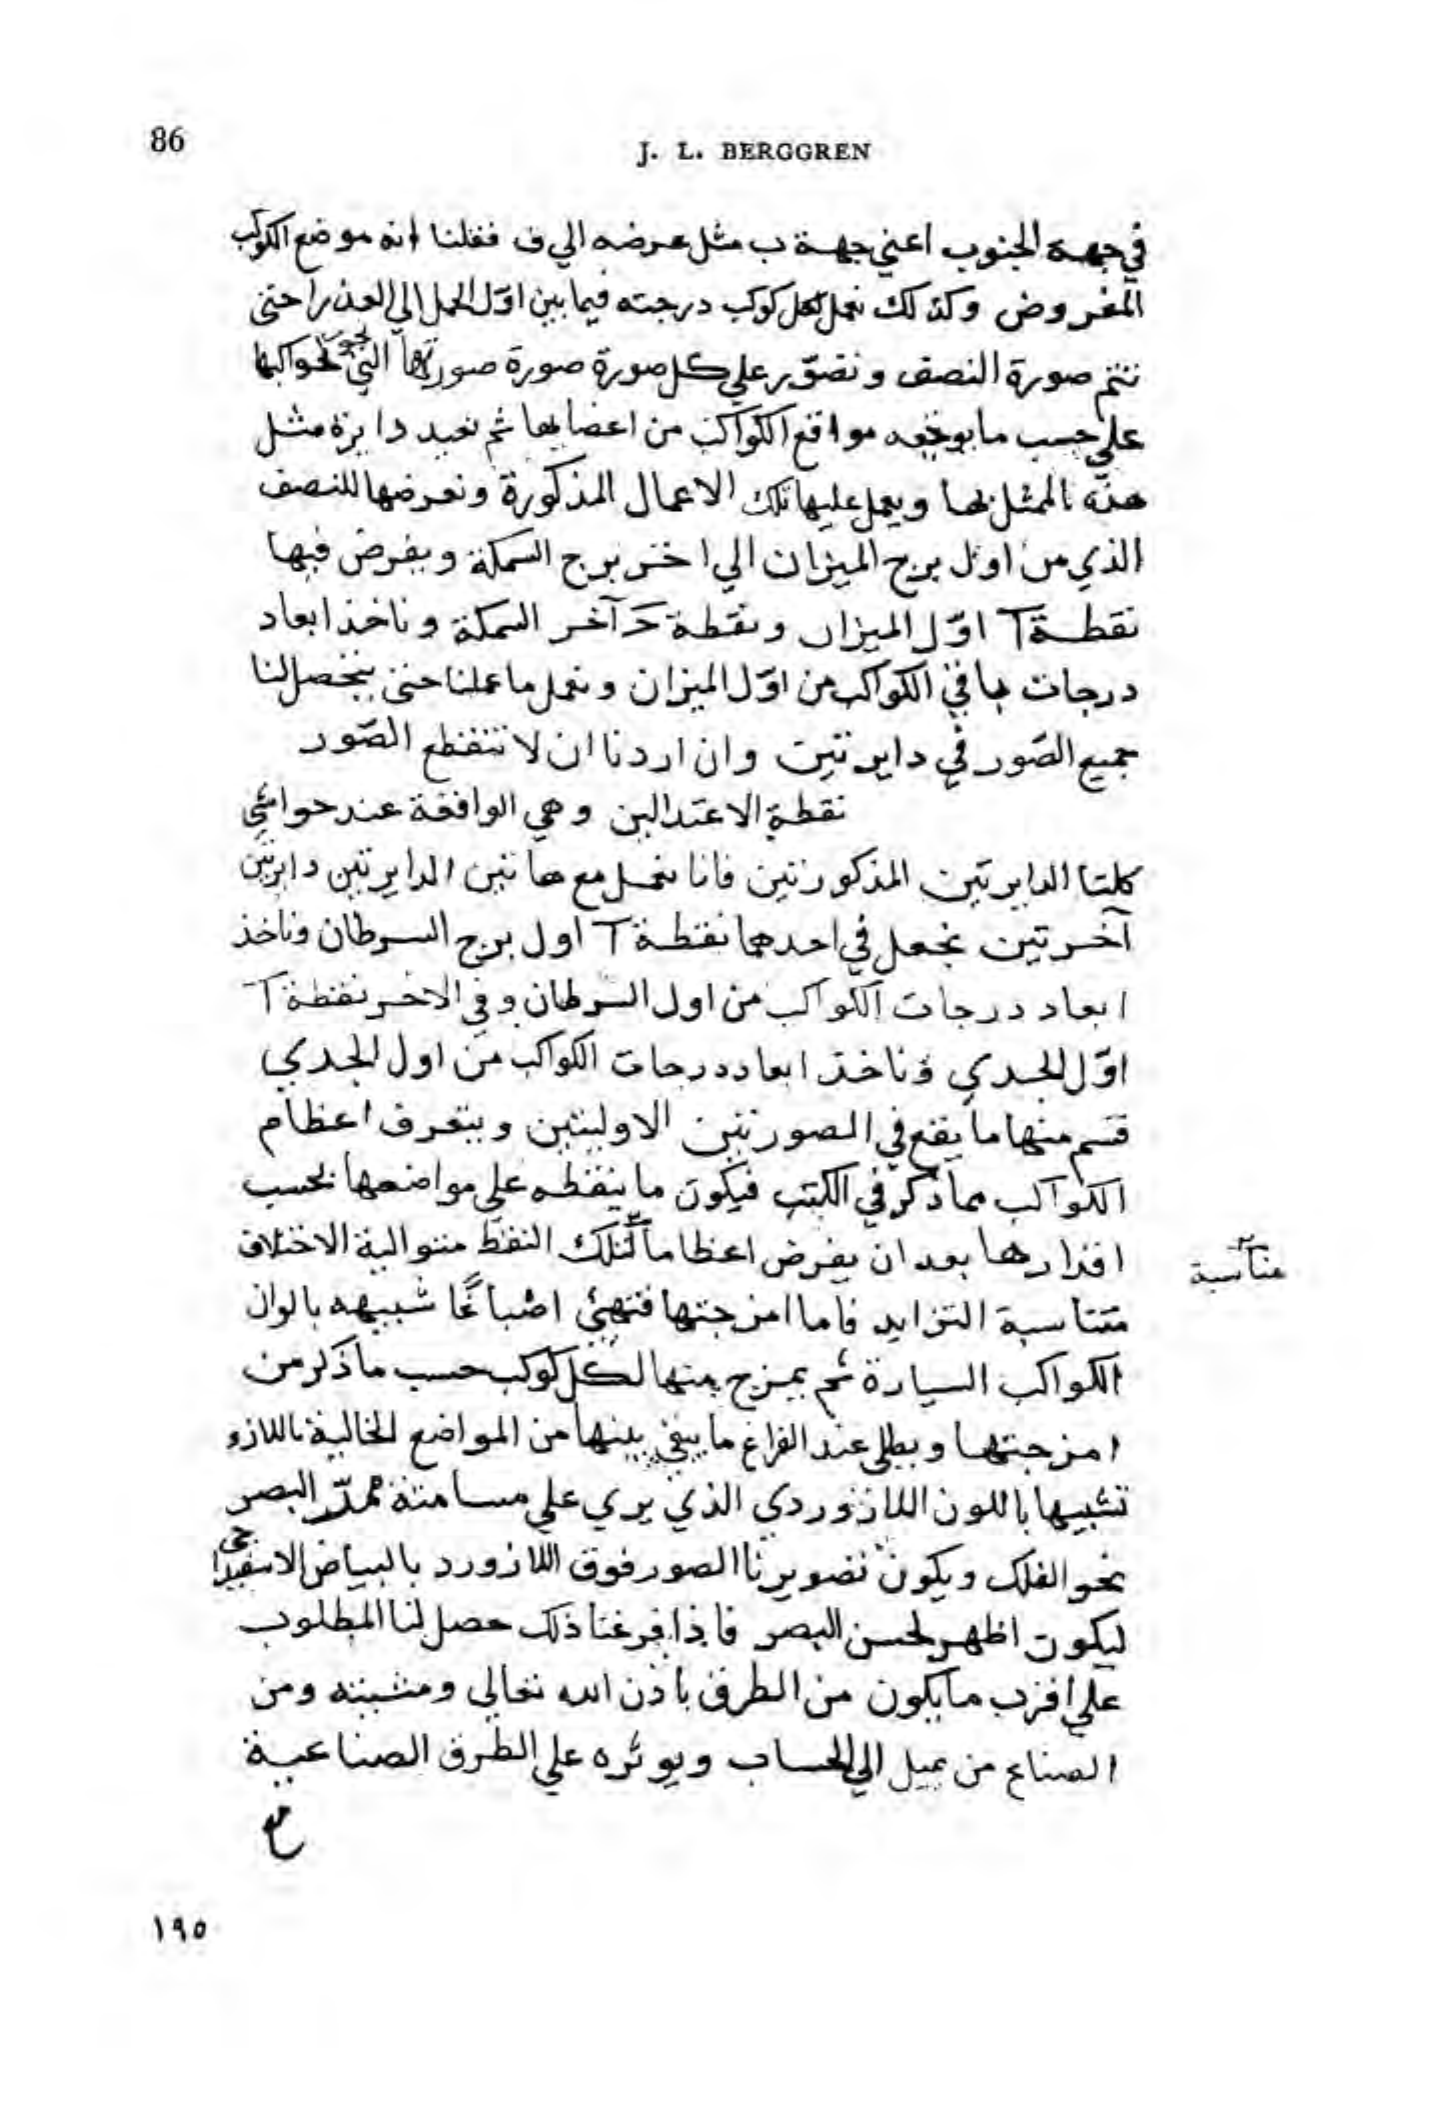 86
J. L. BERGGREN
في جهة الجنوب اعني جهة ب مثل عرضه الي ف فقلنا انه موضع الكوكب
المفروض وكذلك نعمل لكل كوكب درجته فيما بين اوّل الحمل الي العذرا حتى
تتم صورة النصف ونصوّر علي كل صورة صورة صورتها التي كواكبها
علي حسب ما يوجبه مواقع الكواكب من اعضايها ثم نعيد دايرة مثل
هذه بالمثل بها ويعمل عليها تلك الاعمال المذكورة ونعرضها للنصف
الذي من اول برج الميزان الي اخر برج السمكة ويفرض فيها
نقطة آ اوّل الميزان ونقطة حـ آخر السمكة وناخذ ابعاد
درجات باقي الكواكب من اوّل الميزان ونعمل ما عملنا حتى يتحصل لنا
جميع الصّور في دايرتين وان اردنا ان لا تتقطع الصّور
نقطة الاعتدالين وهي الواقفة عند حواشي
كلتا الدايرتين المذكورتين فانا نعمل مع هاتين الدايرتين دايرتين
آخرتين نجعل في احدهما نقطة آ اول برج السرطان وناخذ
ابعاد درجات الكواكب من اول السرطان وفي الاخر نقطة آ
اوّل الجدي وناخذ ابعاد درجات الكواكب من اول الجدي
قسم منها ما يقع في الصورتين الاوليتين ويتعرف اعظام
الكواكب مما ذكر في الكتب فيكون ما ينقطه علي مواضعها بحسب
اقدارها بعد ان يفرض اعظاما لتلك النقط متوالية الاختلاف
مناسبة
متناسبة التزايد فاما امزجتها فتهيئ اصباغًا شبيهه بالوان
الكواكب السيارة ثم يمزج منها لكل كوكب حسب ما ذكر من
امزجتها ويطلي عند الفراغ ما يبقي بينها من المواضع الخالية باللازو
تشبيها باللون اللازوردي الذي يري علي مسامتة ممدّ البصر
نحو الفلك ويكون تصويرنا الصور فوق اللازورد بالبياض الاسفيداجي
ليكون اظهر لحسن البصر فاذا فرغنا ذلك حصل لنا المطلوب
علي اقرب ما يكون من الطرق باذن الله تعالي ومشيته ومن
الصناع من يميل الي الحساب ويوثره علي الطرق الصناعية
١٩٥